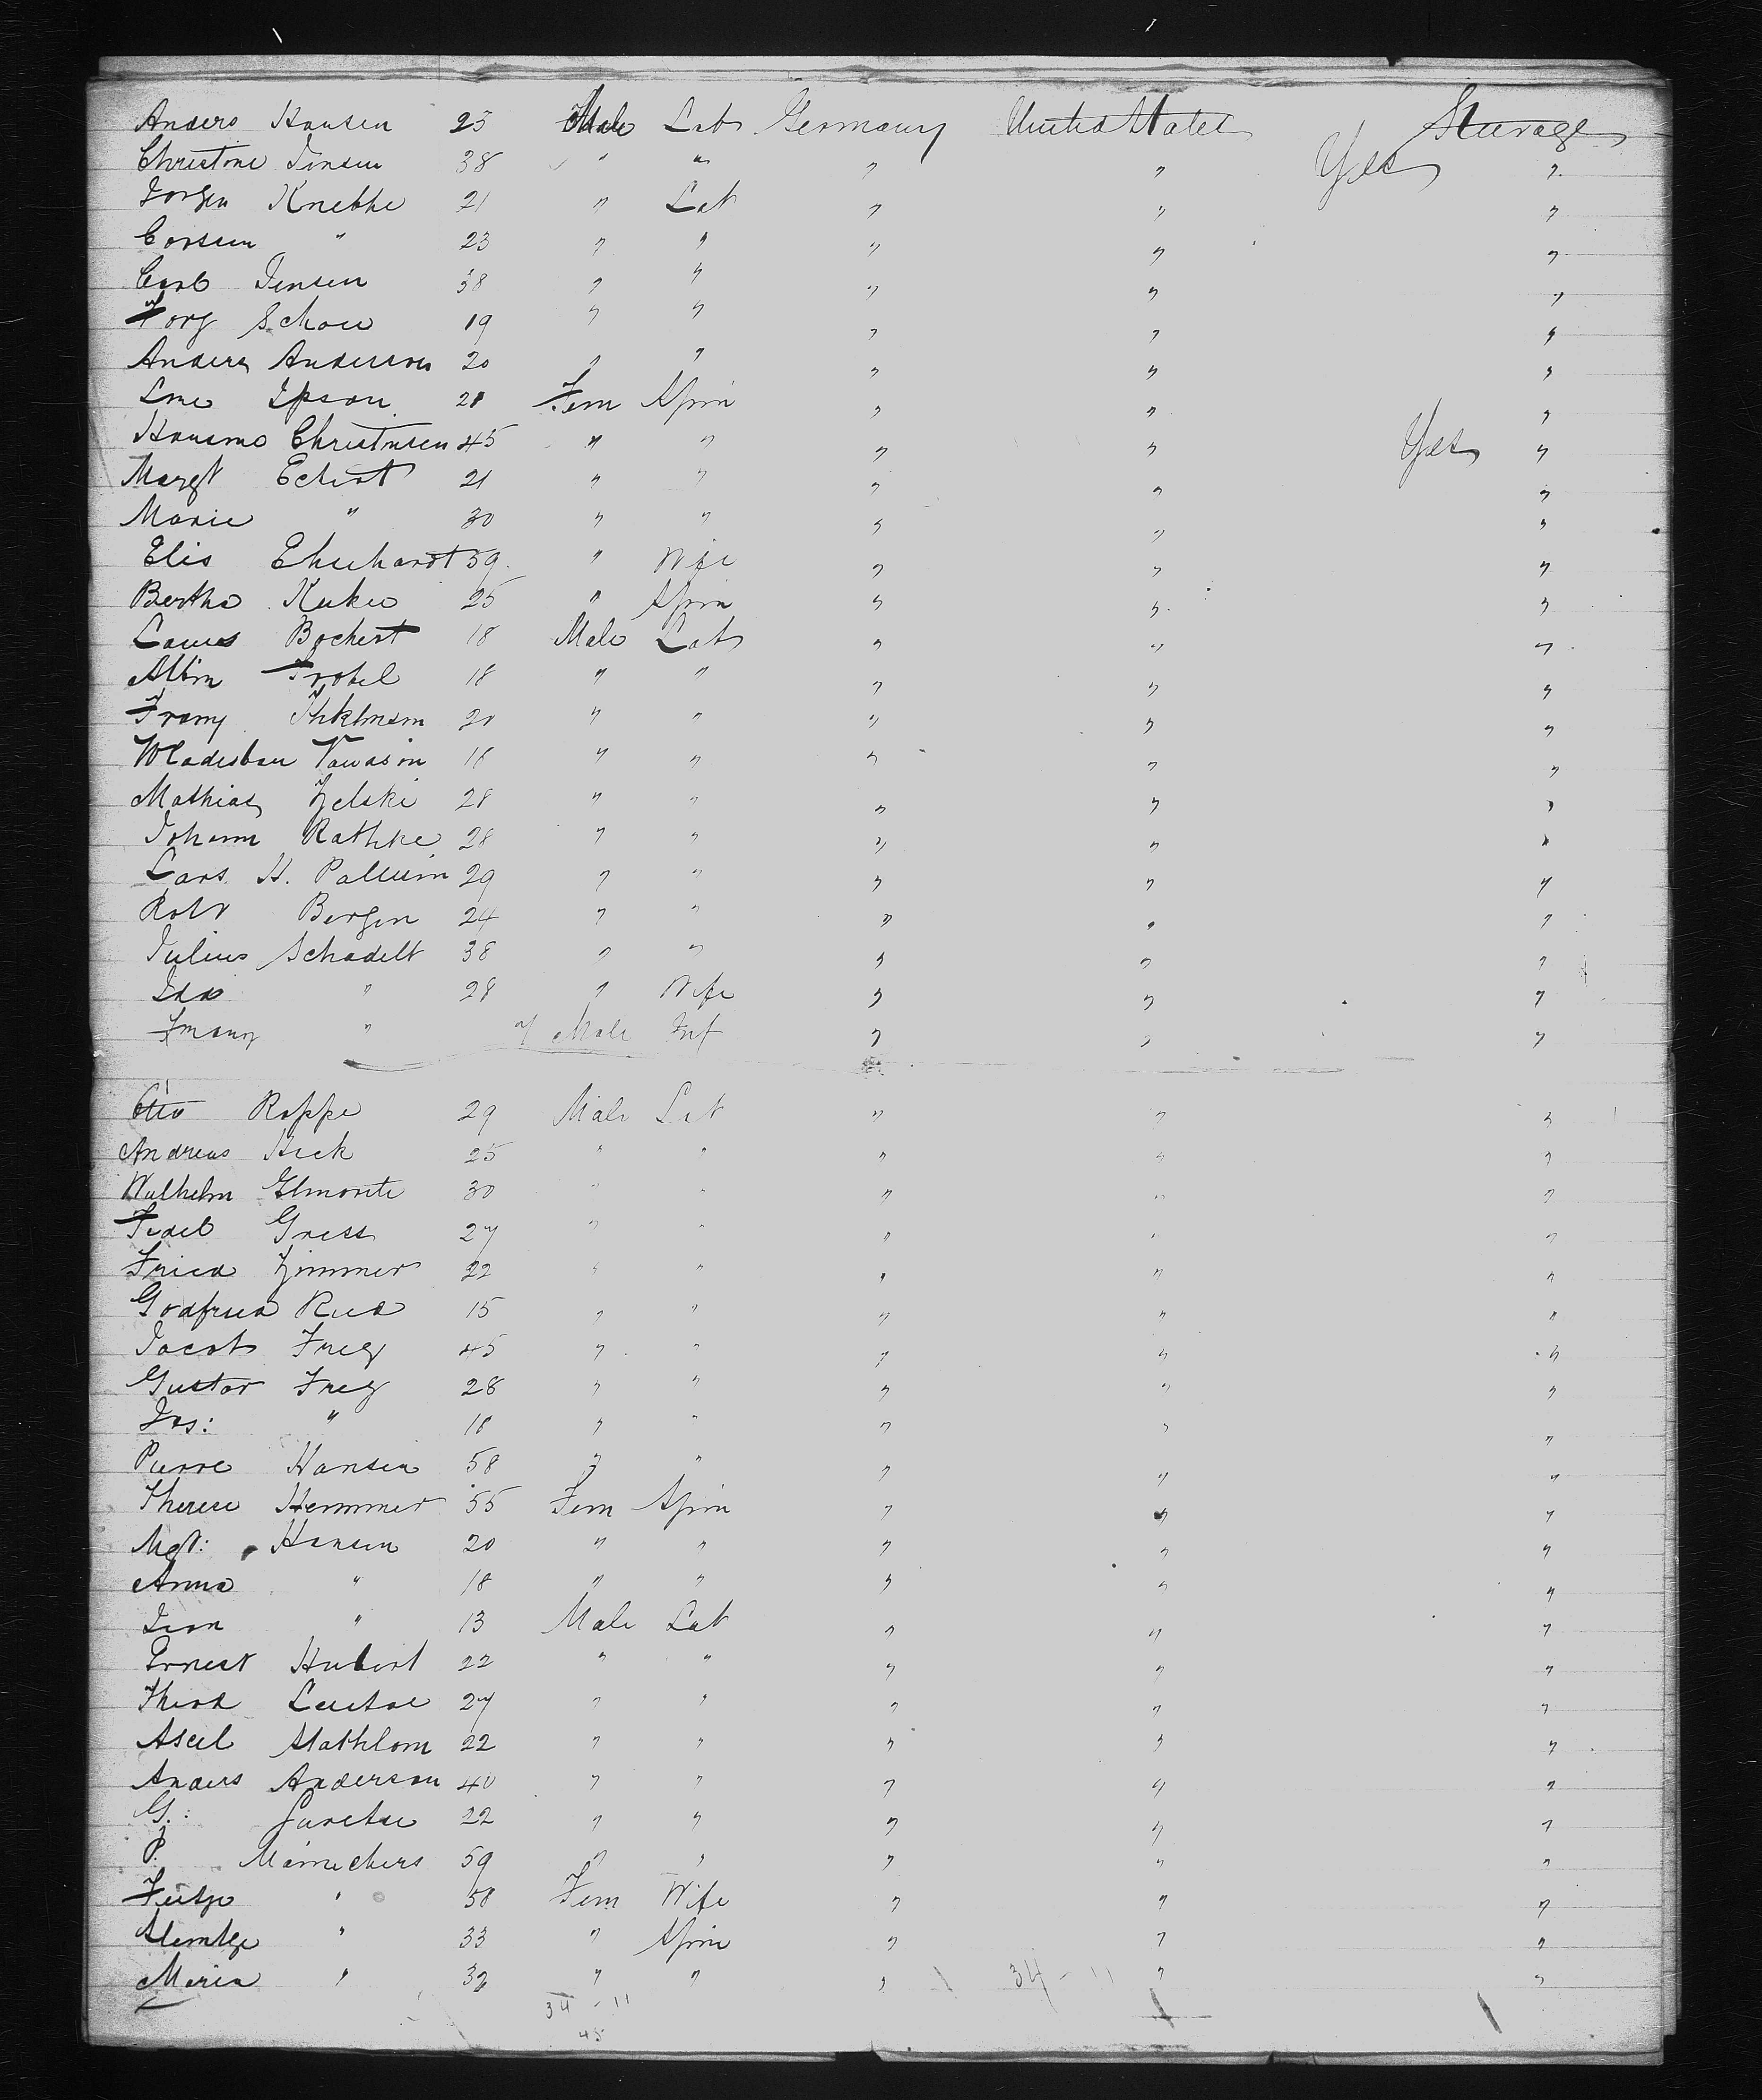 Anders Hansen 25 Male Lab Germany United States Steerage
Christine Jensen 38 " " " " Yes "
Jorgen Knebke 21 " Lab " " "
Corssen " 23 " " " " "
Carl Jensen 38 " " " " "
Jorg Schou 19 " " " " "
Anders Anderson 20 " " " " "
Line Ipson 21 Fem Spin " " "
Hansine Christinsen 45 " " " " Yes "
Margt Echert 21 " " " " "
Marie " 30 " " " " "
Elis Eheihardt 59 " Wife " " "
Bertha Kukei 25 " Spin " " "
Laues Bochert 18 Male Lab " " "
Albin Frobel 18 " " " " "
Franz 20 " " " " "
Wladislau 18 " " " " "
Mathias Zelski 28 " " " " "
Johann Rathke 28 " " " " "
Lars H. Pallisin 29 " " " " "
Robt Bergen 24 " " " " "
Julius Schadelt 38 " " " " "
Ida " 28 " Wife " " "
" Male Inf " " "
Otto Roppe 29 Male Lab " " "
Andreas Heck 25 " " " " "
Wilhelm Elmonte 30 " " " " "
Fidel Gress 27 " " " " "
Fried Zimmer 22 " " " " "
Godfried Ried 15 " " " " "
Jacob Frey 45 " " " " "
Gustav Frey 28 " " " " "
Jos: " 18 " " " " "
Pierre Hansen 58 " " " " "
Therese Hemmer 55 Fem Spin " " "
Mgt: Hansen 20 " " " " "
Anna " 18 " " " " "
Jean " 13 Male Lab " " "
Ernest Hubert 22 " " " " "
Theod 27 " " " " "
Axel Stathlom 22 " " " " "
Anders Anderson 40 " " " " "
G: 22 " " " " "
P. Mamechers 59 " " " " "
" 58 Fem Wife " " "
" 33 " Spin " " "
Maria " 32 " " " 34 - 11 " "
34 - 11
45